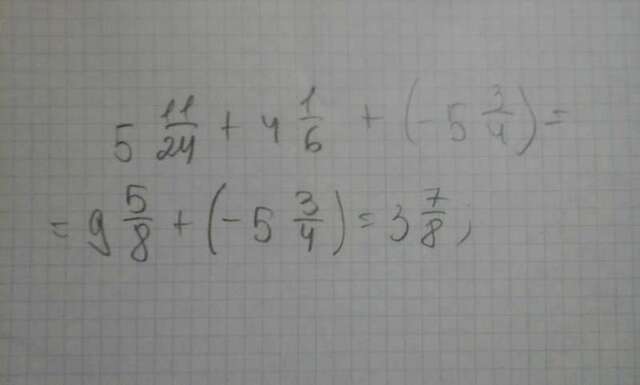 5 11/24 + 4 1/6 + (-5 3/4) =
= 9 5/8 + (-5 3/4) = 3 7/8;